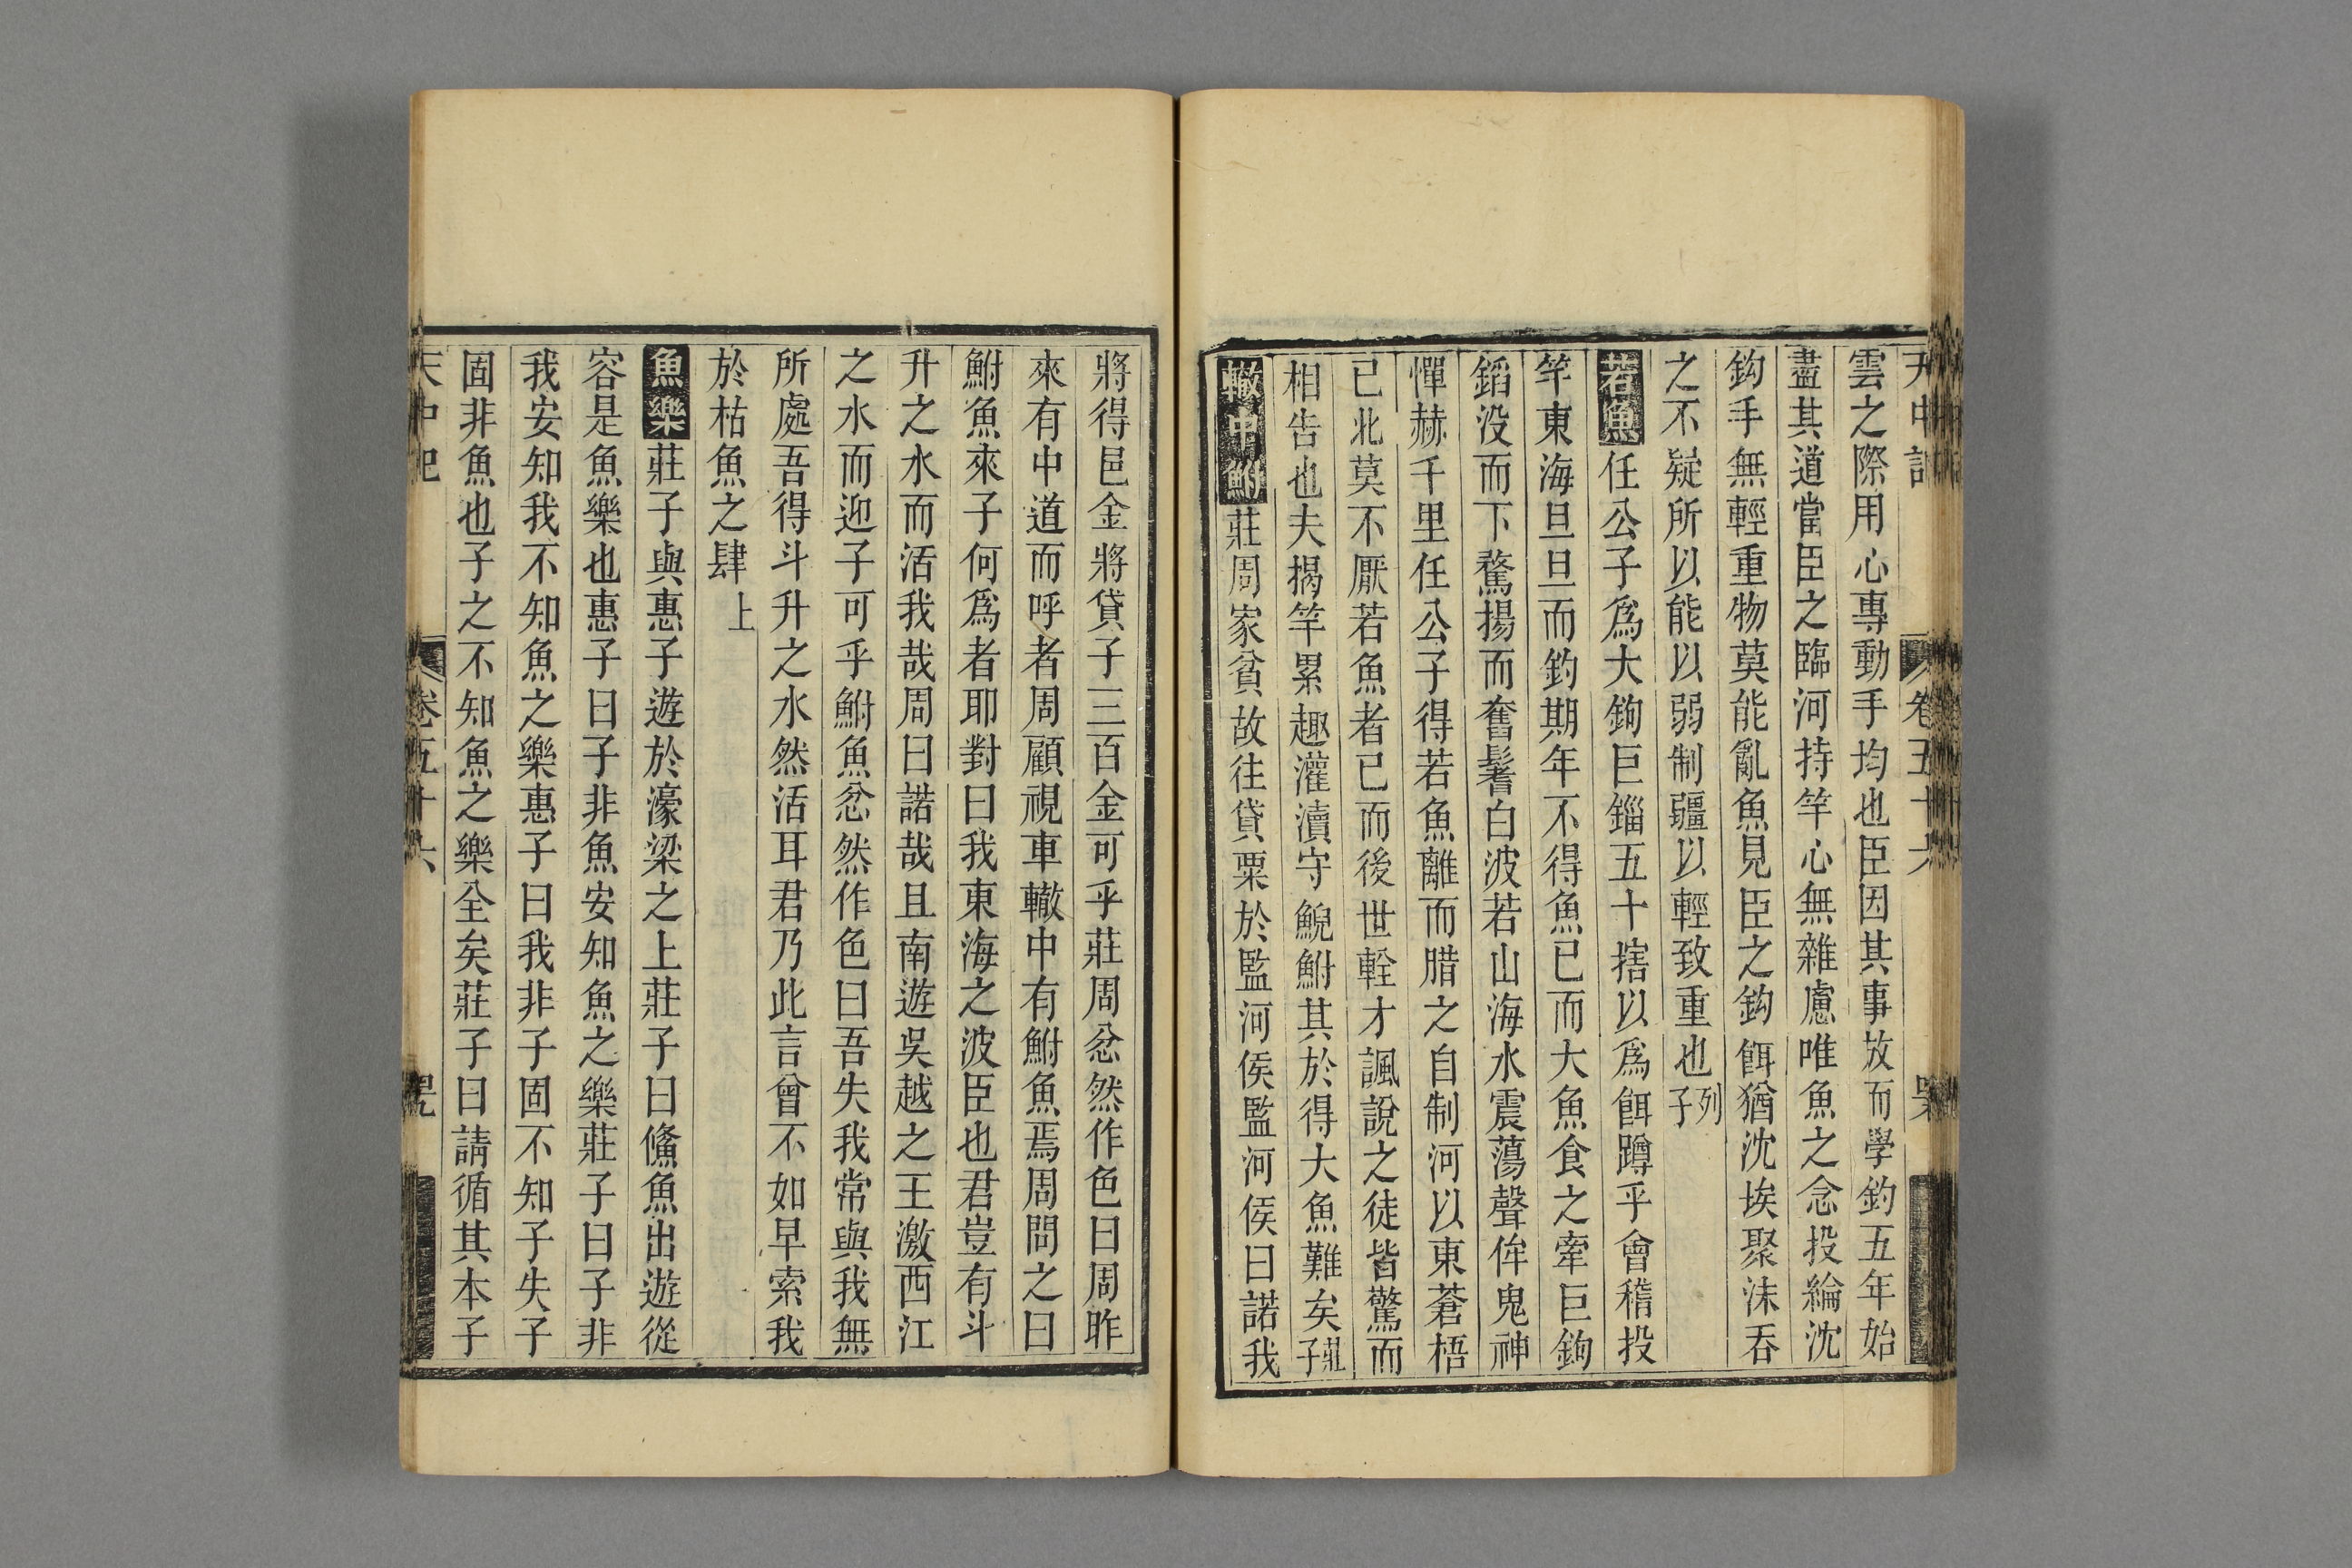 天中記 卷五十六
雲之際用心專動手均也臣因其事放而學釣五年始
盡其道當臣之臨河持竿心無雜慮唯魚之念投綸沈
鈎手無輕重物莫能亂魚見臣之鈎餌猶沈埃聚沫吞
之不疑所以能以弱制疆以輕致重也列子
若魚任公子爲大鉤巨錙五十犗以爲餌蹲乎會稽投
竿東海旦旦而釣期年不得魚已而大魚食之牽巨鉤
錎没而下騖揚而奮鬐白波若山海水震蕩聲侔鬼神
憚赫千里任公子得若魚離而腊之自制河以東蒼梧
已北莫不厭若魚者已而後世輇才諷說之徒皆驚而
相告也夫揭竿累趣灌瀆守鯢鮒其於得大魚難矣莊子
轍中鮒莊周家貧故往貸粟於監河侯監河侯曰諾我
將得邑金將貸子三百金可乎莊周忿然作色曰周昨
來有中道而呼者周顧視車轍中有鮒魚焉周問之曰
鮒魚來子何爲者耶對曰我東海之波臣也君豈有斗
升之水而活我哉周曰諾哉且南遊吳越之王激西江
之水而迎子可乎鮒魚忿然作色曰吾失我常與我無
所處吾得斗升之水然活耳君乃此言曾不如早索我
於枯魚之肆上
魚樂莊子與惠子遊於濠梁之上莊子曰儵魚出遊從
容是魚樂也惠子曰子非魚安知魚之樂莊子曰子非
我安知我不知魚之樂惠子曰我非子固不知子失子
固非魚也子之不知魚之樂全矣莊子曰請循其本子
天中記 卷五十六